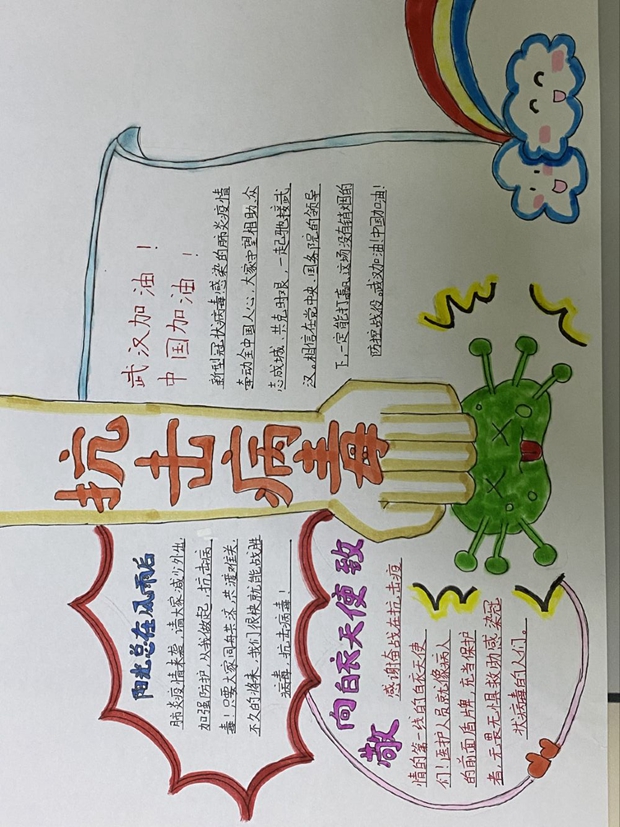 抗击病毒
阳光总在风雨后
肺炎疫情来袭,请大家减少外出
加强防护,从我做起,抗击病
毒!只要大家同舟共济,共渡难关.
不久的将来,我们很快就能战胜
病毒,抗击病毒!
向白衣天使致
敬
感谢奋战在抗击疫
情的第一线的白衣天使
们!医护人员就像病人
的前面盾牌,充当保护
者,无畏无惧救助感染冠
状病毒的人们。
武汉加油!
中国加油!
新型冠状病毒感染的肺炎疫情
牵动全中国人心,大家守望相助,众
志成城、共克时艰,一起驰援武
汉。相信在党中央、国务院的领导
下,一定能打赢这场没有硝烟的
防控战役。武汉加油!中国加油!